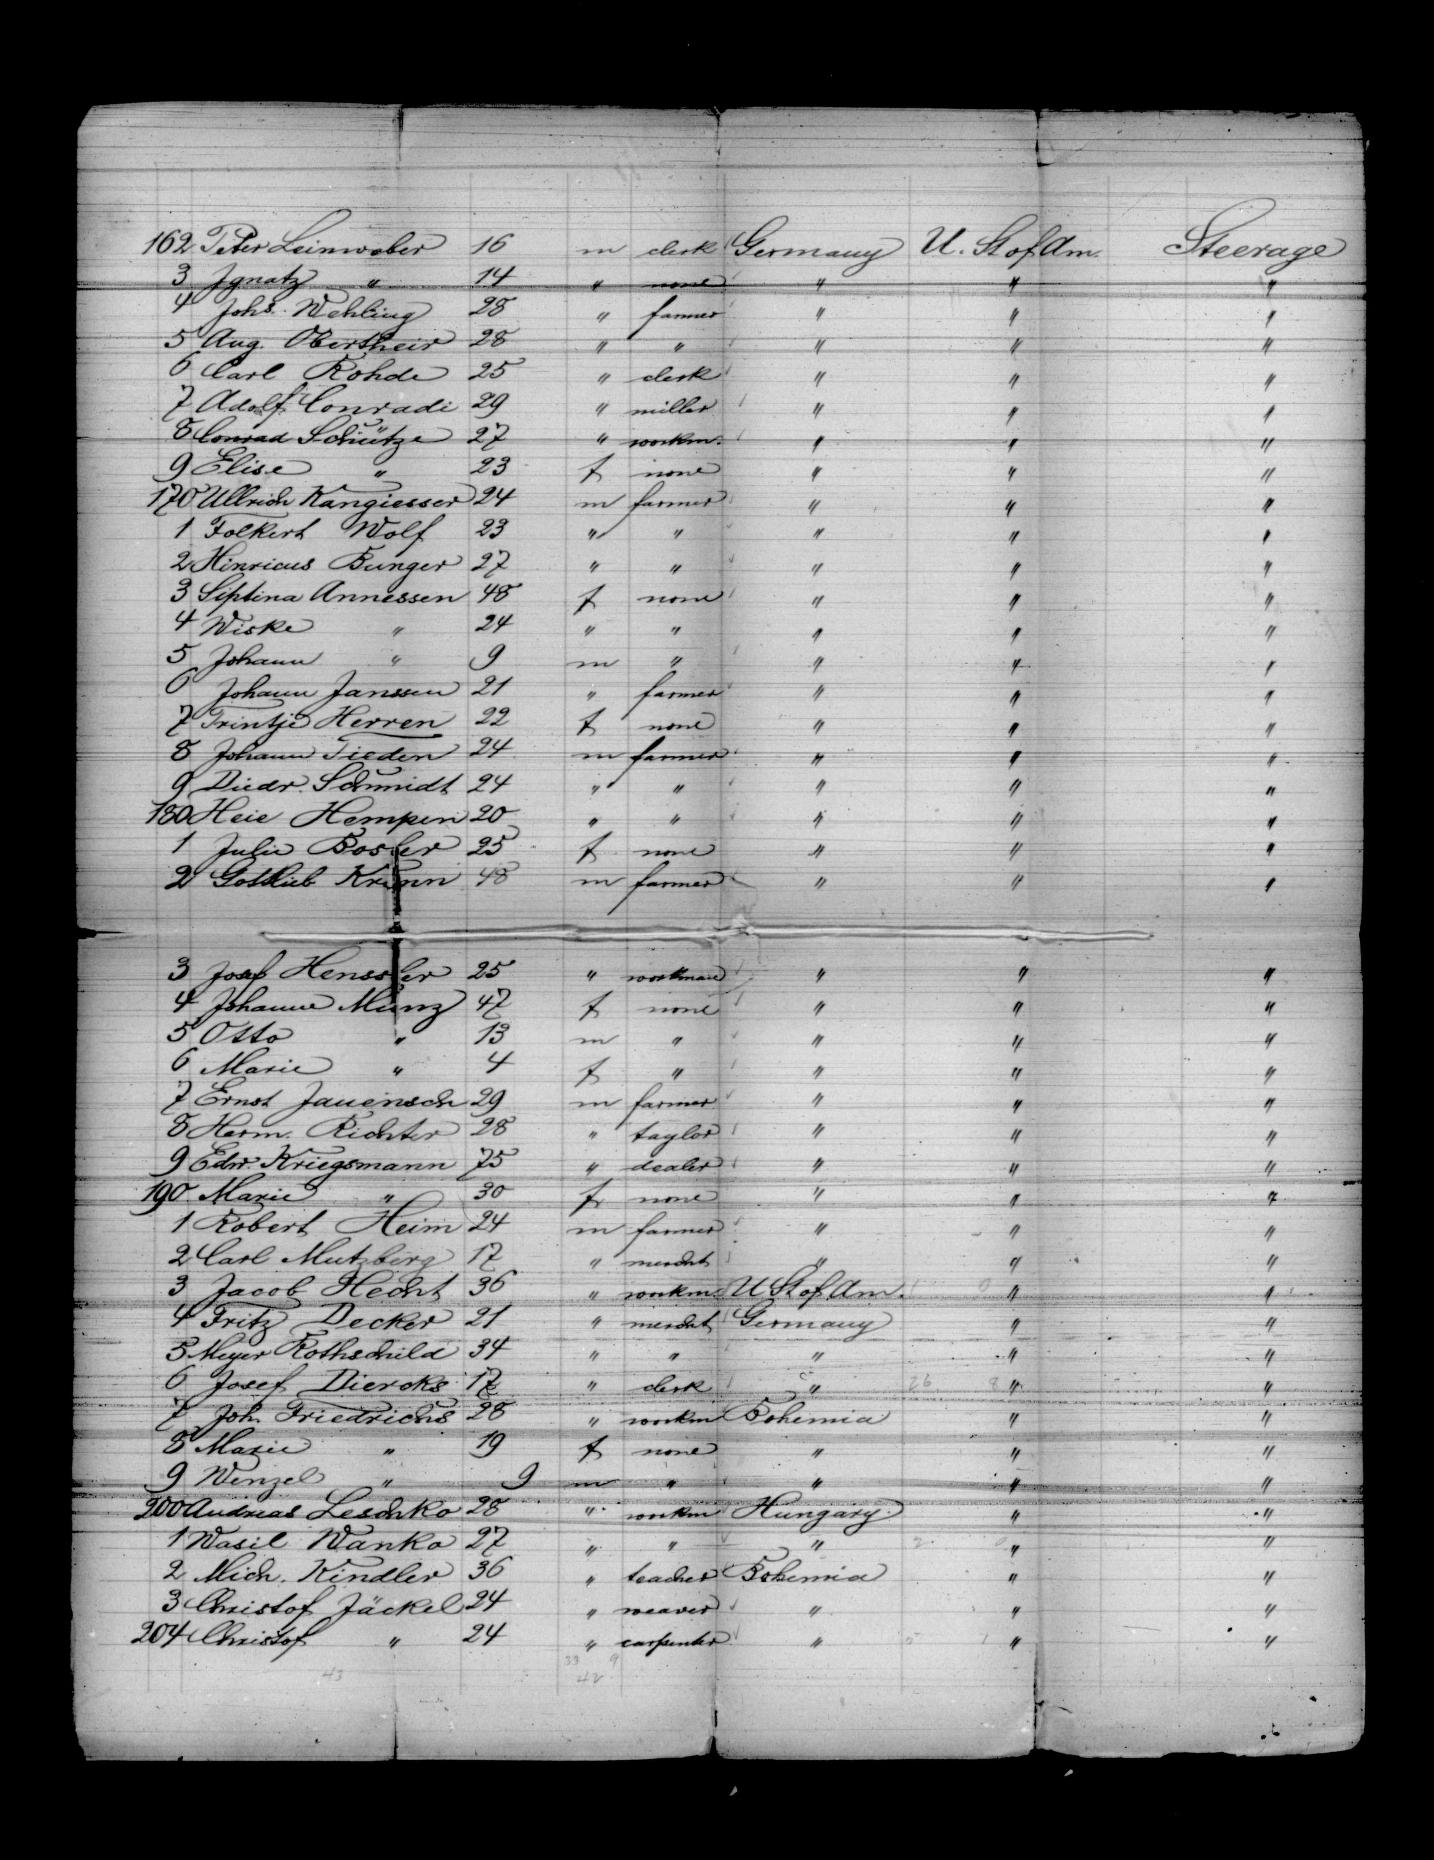 162 Peter Leinwober 16 m clerk Germany U. St of Am. Steerage
3 Ignatz " 14 " none " " "
4 Johs. Wehling 28 " farmer " " "
5 Aug. Obertheir 28 " " " " "
6 Carl Rohde 25 " clerk " " "
7 Adolf Conradi 29 " miller " " "
8 Conrad Schütze 27 " workm. " " "
9 Elise " 23 f none " " "
170 Ullrich Kangiesser 24 m farmer " " "
1 Folkert Wolf 23 " " " " "
2 Hinricus Bunger 27 " " " " "
3 Siptina Annessen 48 f none " " "
4 Wiske " 24 " " " " "
5 Johann " 9 m " " " "
6 Johann Janssen 21 " farmer " " "
7 Trintje Herren 22 f none " " "
8 Johann Tieden 24 m farmer " " "
9 Diedr. Schmidt 24 " " " " "
180 Heie Hempen 20 " " " " "
1 Julie Bosler 25 f none " " "
2 Gottlieb 48 m farmer " " "
3 Josef Henssler 25 " workman " " "
4 Johanne Munz 47 f none " " "
5 Otto " 13 m " " " "
6 Marie " 4 f " " " "
7 Ernst Jauensch 29 m farmer " " "
8 Herm. Richter 28 " taylor " " "
9 Edw. Kriegsmann 75 " dealer " " "
190 Marie " 30 f none " " "
1 Robert Heim 24 m farmer " " "
2 Carl Mutzberg 17 " mercht " " "
3 Jacob Hecht 36 " workm. U St of Am. " "
4 Fritz Decker 21 " mercht Germany " "
5 Meyer Rothschild 34 " " " " "
6 Josef Diercks 17 " clerk " 26 8 " "
7 Joh. Friedrichs 28 " workm Bohemia " "
8 Marie " 19 f none " " "
9 Wenzel " 9 m " " " "
200 Andreas Leschko 28 " workm Hungary " "
1 Wasil Wanko 27 " " " 2 " "
2 Mich. Kindler 36 " teacher Bohemia " "
3 Christof Jäckel 24 " weaver " " "
204 Christof " 24 " carpenter " 5 1 " "
33 9
43 42